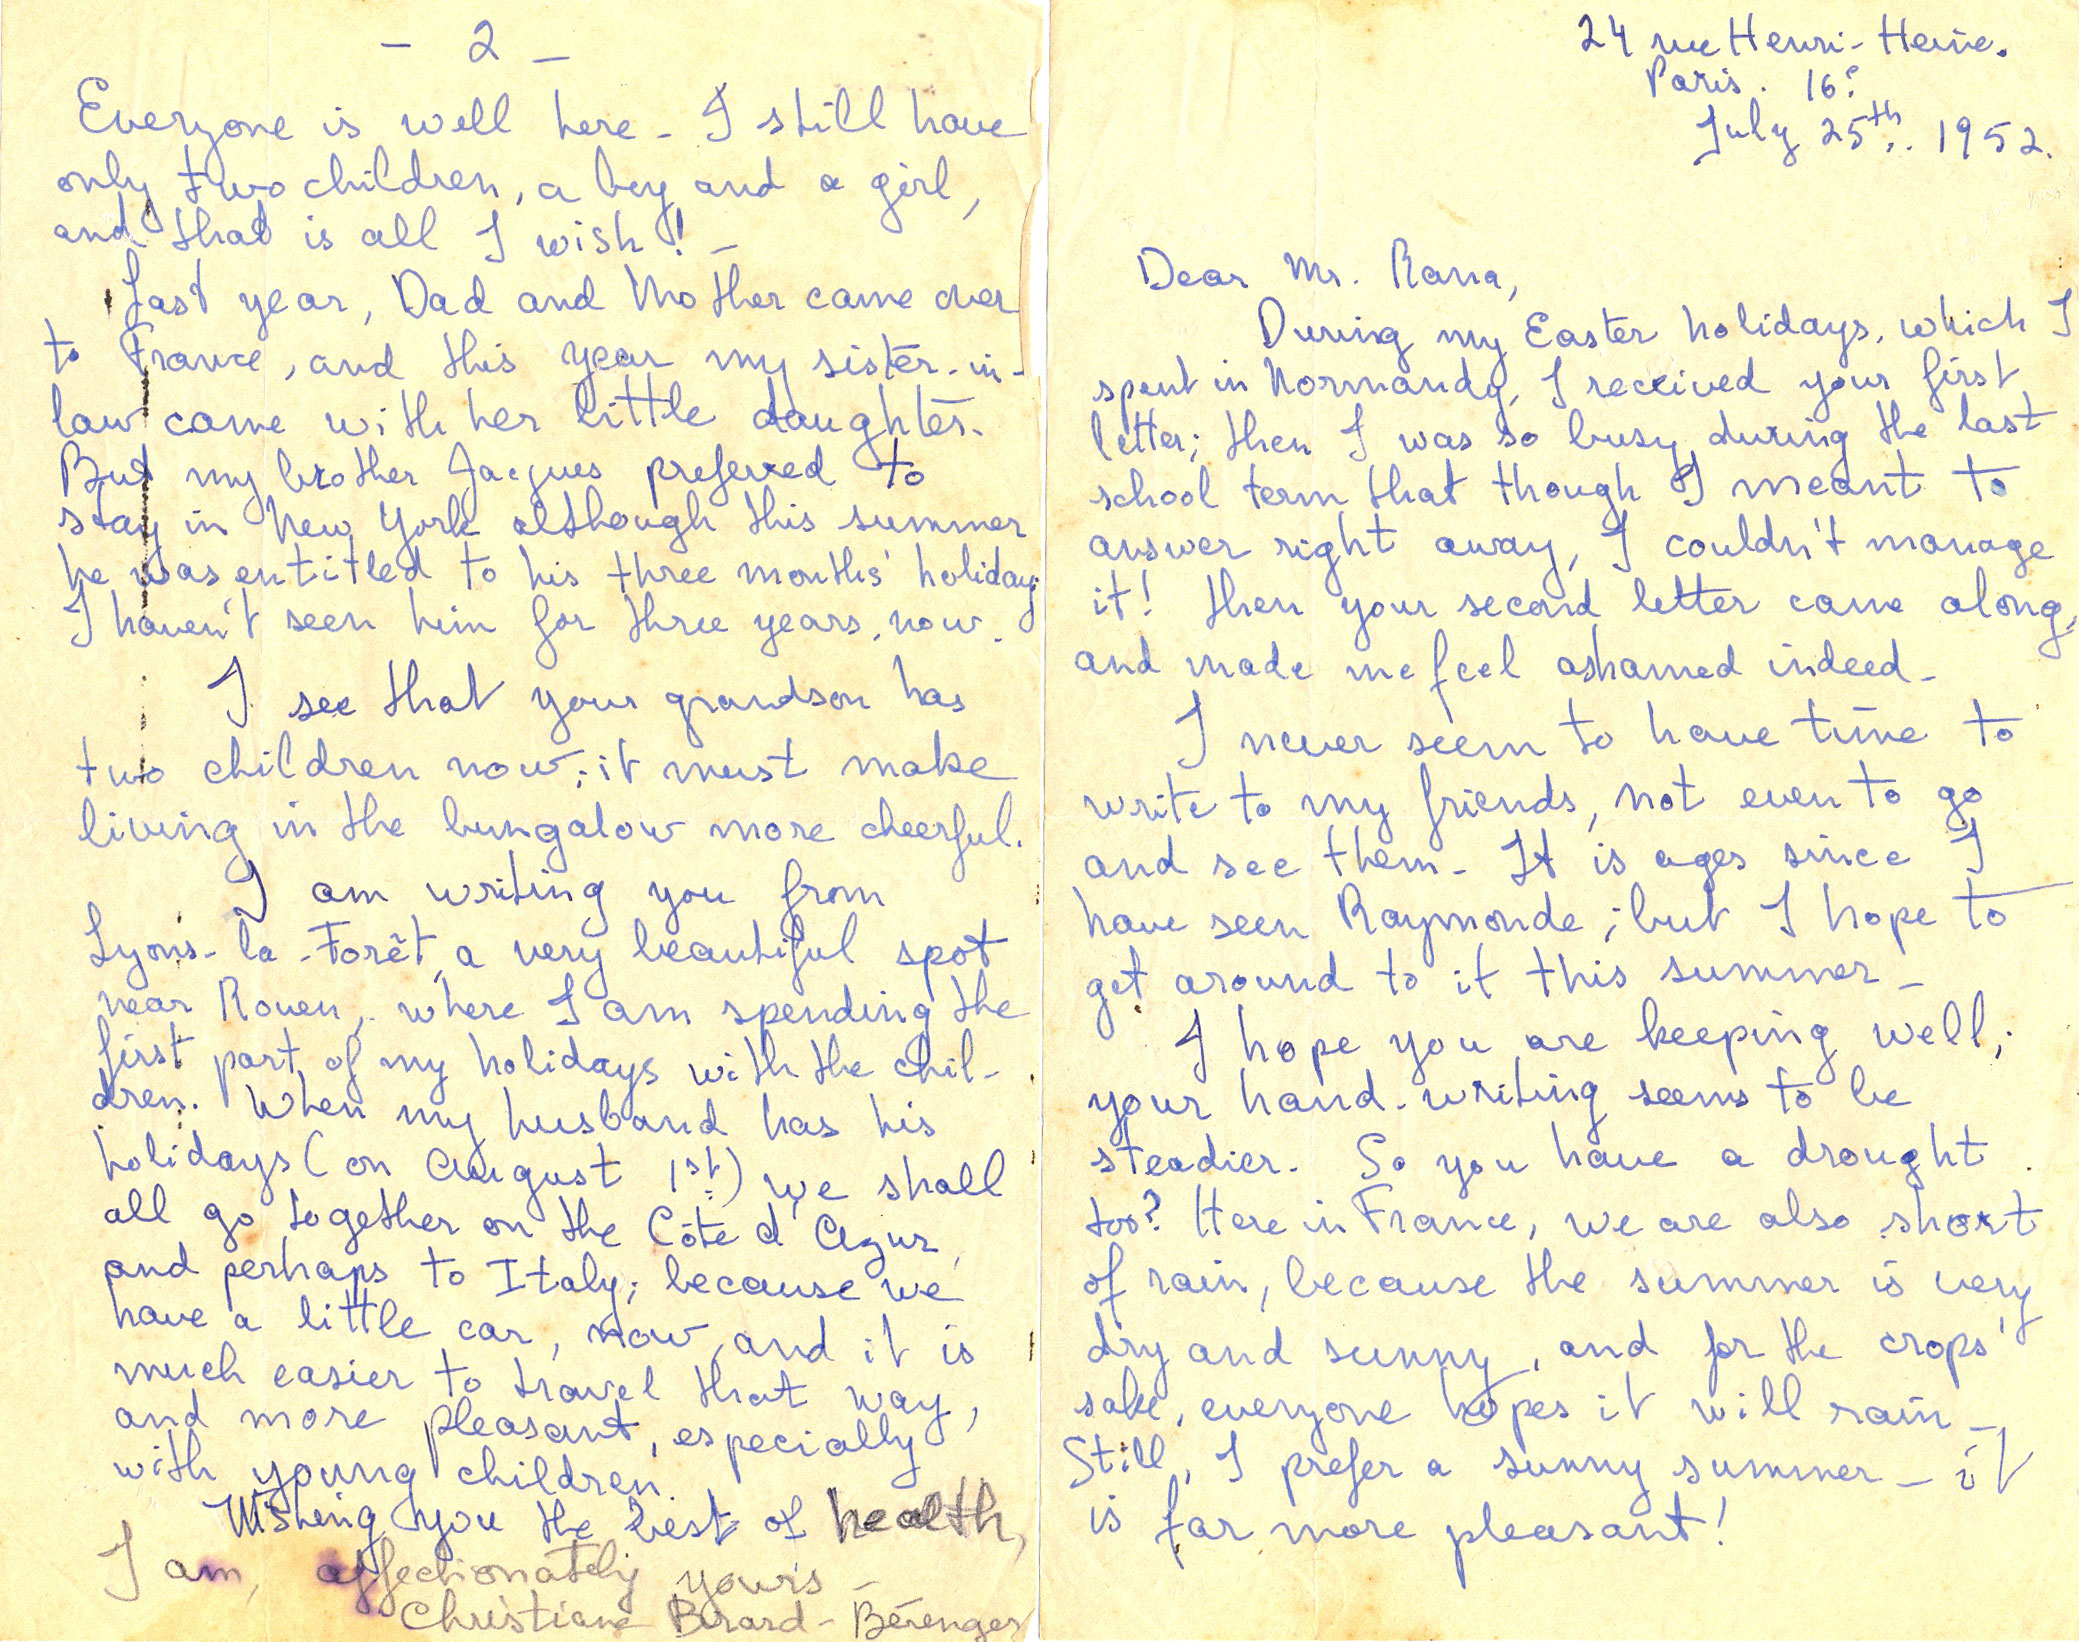 24 rue Henri-Heine.
Paris. 16e
July 25th. 1952.
Dear Mr. Rana,
During my Easter holidays, which I
spent in Normandy, I received your first
letter; then I was so busy during the last
school term that though I meant to
answer right away, I couldn't manage
it! then your second letter came along,
and made me feel ashamed indeed-
I never seem to have time to
write to my friends, not even to go
and see them- It is ages since I
have seen Raymonde; but I hope to
get around to it this summer-
I hope you are keeping well;
your hand-writing seems to be
steadier. So you have a drought
too? Here in France, we are also short
of rain, because the summer is very
dry and sunny, and for the crops'
sake, everyone hopes it will rain-
Still, I prefer a sunny summer- it
is far more pleasant!
- 2 -
Everyone is well here- I still have
only two children, a boy and a girl,
and that is all I wish! -
Last year, Dad and Mother came over
to France, and this year my sister-in-
law came with her little daughter.
But my brother Jacques preferred to
stay in New York although this summer
he was entitled to his three months' holiday.
I haven't seen him for three years, now.
I see that your grandson has
two children now; it must make
living in the bungalow more cheerful.
I am writing you from
Lyons-la-Forêt, a very beautiful spot
near Rouen, where I am spending the
first part of my holidays with the chil-
dren. When my husband has his
holidays (on August 1st) we shall
all go together on the Côte d'Azur,
and perhaps to Italy; because we
have a little car, now, and it is
much easier to travel that way,
and more pleasant, especially
with young children.
Wishing you the best of health,
I am, affectionately yours-
Christiane Bérard-Bérenger